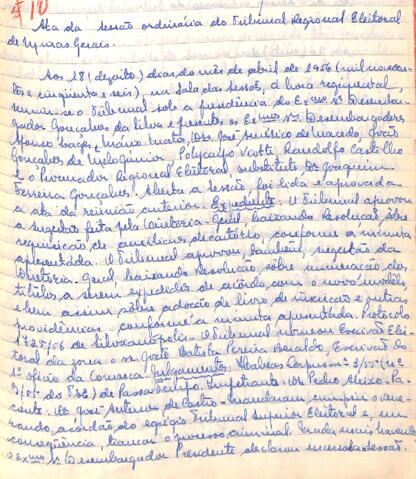 10
Ata da sessão ordinária do Tribunal Regional Eleitoral
de Minas Gerais.
Aos 18 (dezoito) dias do mês de abril de 1956 (mil novecen-
tos e cinqüenta e seis), na Sala das Sessões, à hora regimental,
reuniu-se o Tribunal sob a presidência do Exmo. Sr. Desembar-
gador Gonçalves da Silva e presentes os Exmos. Srs. Desembargadores
Afonso Lages, Mário Matos, Drs. José Américo de Macedo, João
Gonçalves de Melo Júnior, Policarpo Viotti, Randolfo Castilho
e o Procurador Regional Eleitoral, substituto, Dr. Joaquim
Ferreira Gonçalves. Aberta a sessão, foi lida e aprovada
a ata da reunião anterior. Expediente. O Tribunal aprovou
a sugestão feita pela Diretoria-Geral, baixando Resolução sôbre
requisição de auxiliares de cartório, conforme a minuta
apresentada. O Tribunal aprovou, também, sugestão da
Diretoria-Geral, baixando Resolução sôbre numeração dos
títulos a serem expedidos de acôrdo com o novo modêlo
e bem assim sôbre adoção de livro de inscrição e outras
providências conforme a minuta apresentada. Protocolo
1725/56 de O Tribunal nomeou Escrivão Elei-
toral da zona o sr. João Batista Pereira Beraldo, Escrivão do
1º ofício da Comarca. Julgamentos: Habeas Corpus nº 3/55 (nº
do TSE) de Passa Tempo. Impetrante: Dr. Pedro Aleixo. Pa-
ciente: José de Castro. Mandaram cumprir o vene-
rando acórdão do egrégio Tribunal Superior Eleitoral e, em
conseqüência, trancar o processo criminal. Nada mais havendo
o Exmo. Sr. Desembargador Presidente declarou encerrada a sessão.